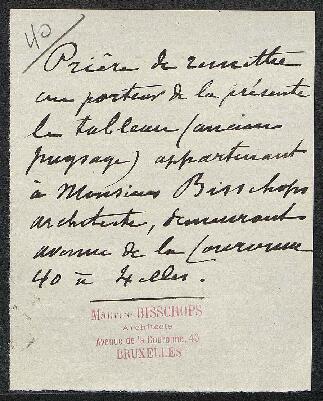 40
Prière de remettre
au porteur de la présente
le tableau (ancien
paysage) appartenant
à Monsieur Bisschops
architecte, demeurant
avenue de la Couronne
40 à Ixelles.
MARTIN BISSCHOPS
Architecte
Avenue de la Couronne, 40
BRUXELLES